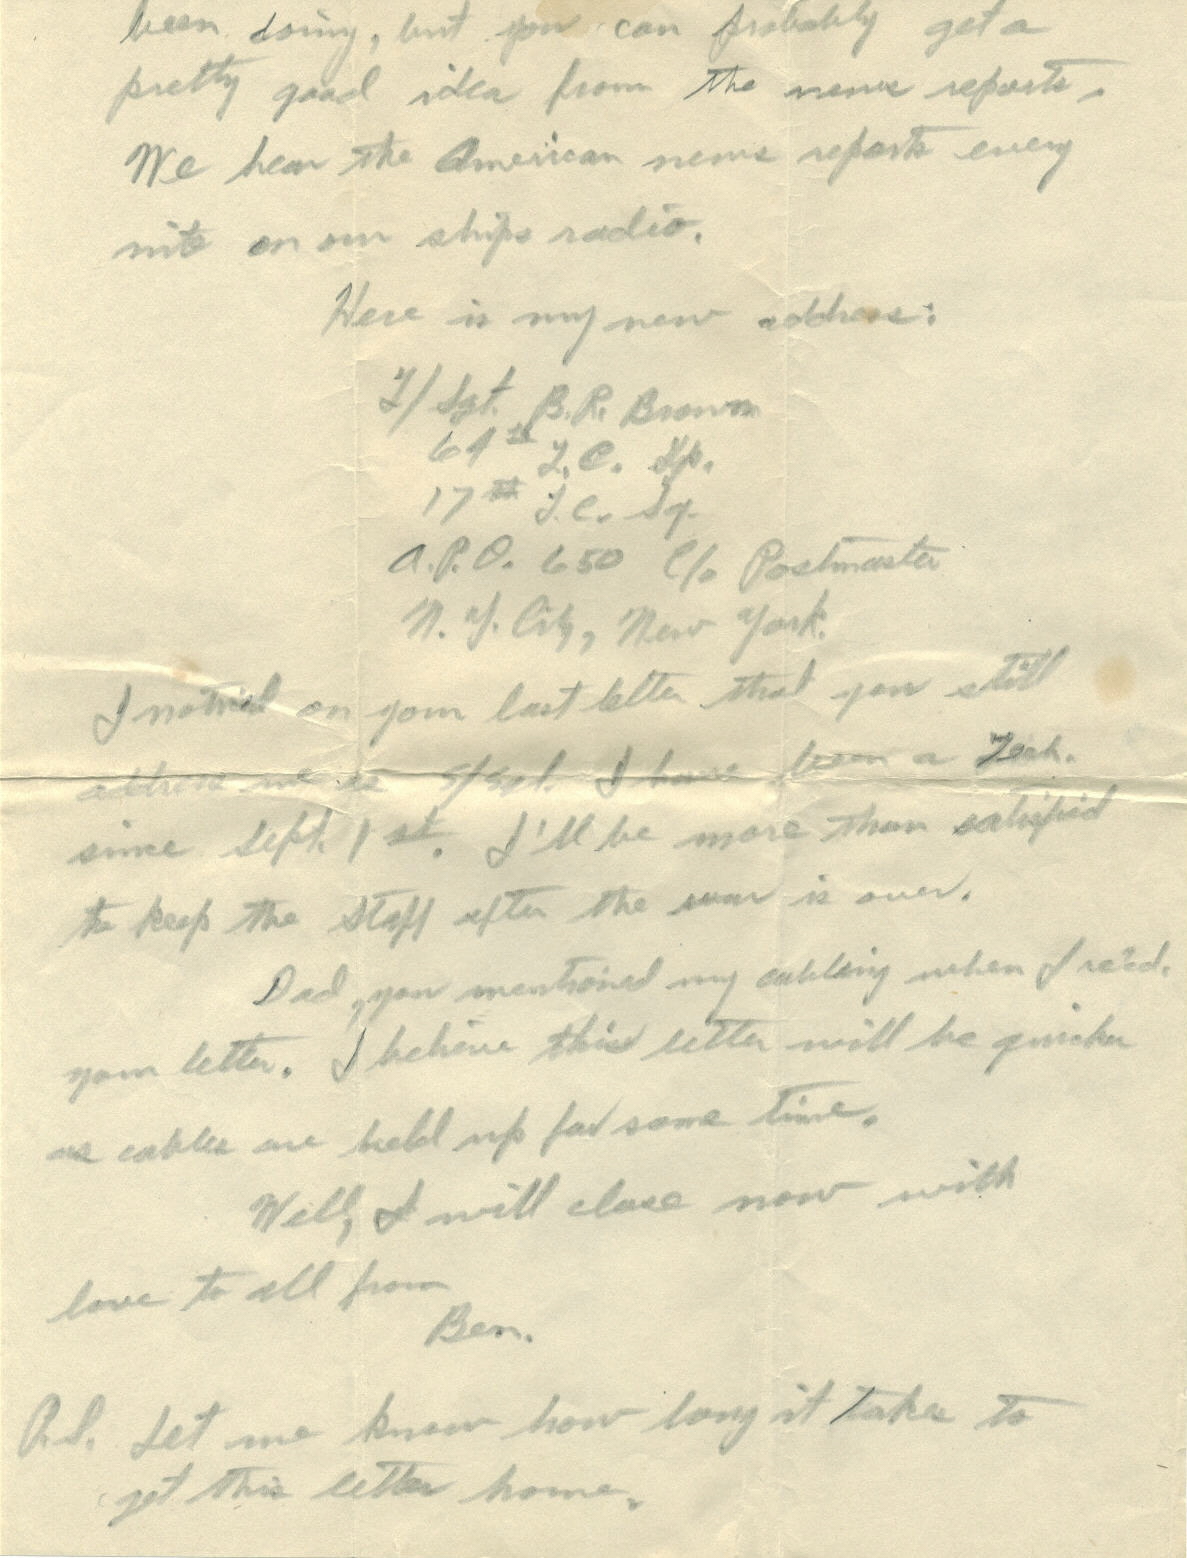 been doing, but you can probably get a
pretty good idea from the news reports.
We hear the American news reports every
nite on our ships radio.
Here is my new address:
T/Sgt. B.R. Brown
64th T.C. Gp.
17th T.C. Sq.
A.P.O. 650 C/o Postmaster
N.Y. City, New York.
I noticed on your last letter that you still
address me as S/Sgt. I have been a Tech.
since Sept. 1st. I'll be more than satisfied
to keep the Staff after the war is over.
Dad, you mentioned my cabling when I rec'd.
your letter. I believe this letter will be quicker
as cables are held up for some time.
Well, I will close now with
love to all from
Ben.
P.S. Let me know how long it takes to
get this letter home.